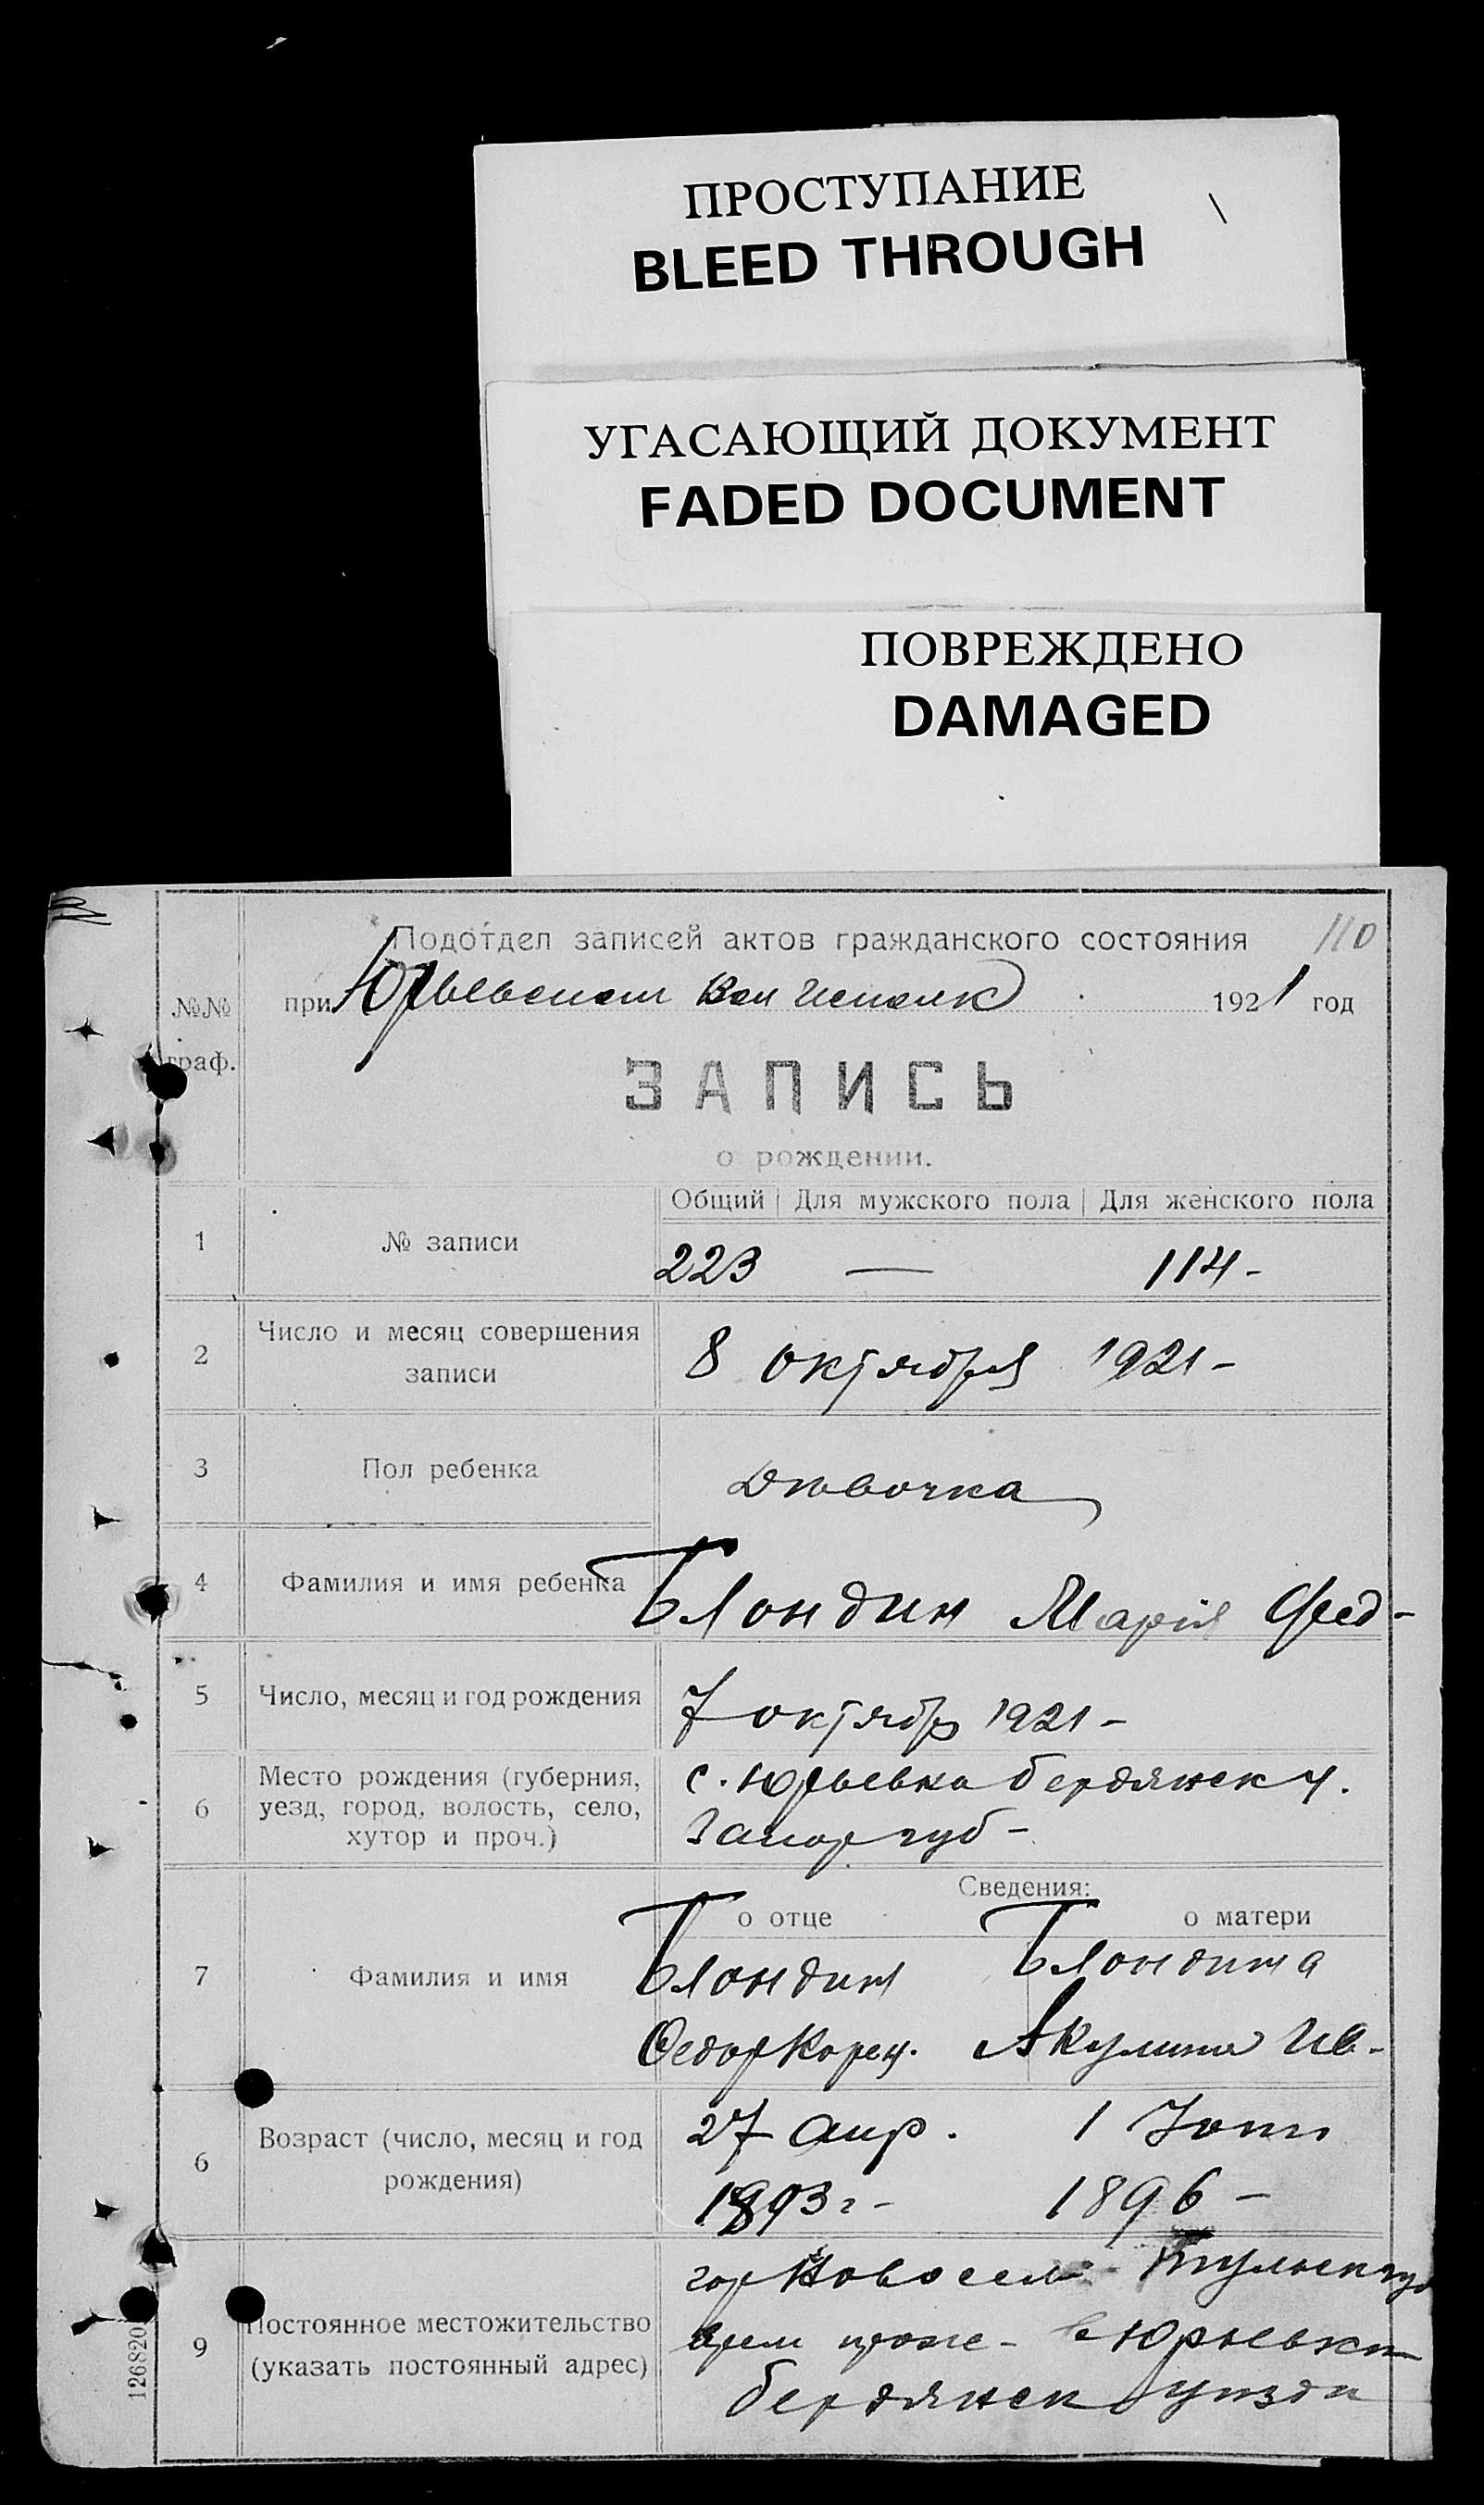 ПРОСТУПАНИЕ
BLEED THROUGH
УГАСАЮЩИЙ ДОКУМЕНТ
FADED DOCUMENT
ПОВРЕЖДЕНО
DAMAGED
Подотдел записей актов гражданского состояния 110
№№ граф.
при Юрьевском Вол Исполк 1921 год
ЗАПИСЬ
о рождении.
Общий Для мужского пола Для женского пола
1 № записи 223 — 114-
2 Число и месяц совершения
записи 8 октября 1921-
3 Пол ребенка Дѣвочка
4 Фамилия и имя ребенка Блондин Марія Фед-
5 Число, месяц и год рождения 7 октябр 1921-
6 Место рождения (губерния,
уезд, город, волость, село,
хутор и проч.)
с. Юрьевка Бердянск у.
Запор губ-
Сведения:
о отце о матери
7 Фамилия и имя
Блондин Блондина
Федор Корец. Акулина Ив-
6 Возраст (число, месяц и год
рождения)
27 апр. 1 Іюня
1893г- 1896-
9 Постоянное местожительство
(указать постоянный адрес)
гор Новосел- Тульск губ
врем прож- в Юрьевки
Бердянск уѣзда
126820